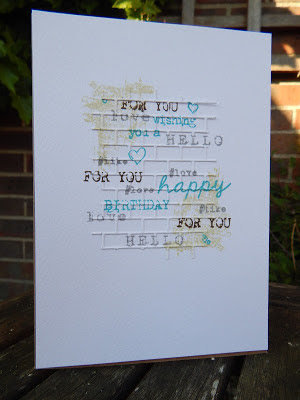 FOR YOU
love wishing
you a HELLO
#like
FOR YOU #love
#love happy
BIRTHDAY #like
love FOR YOU
HELLO